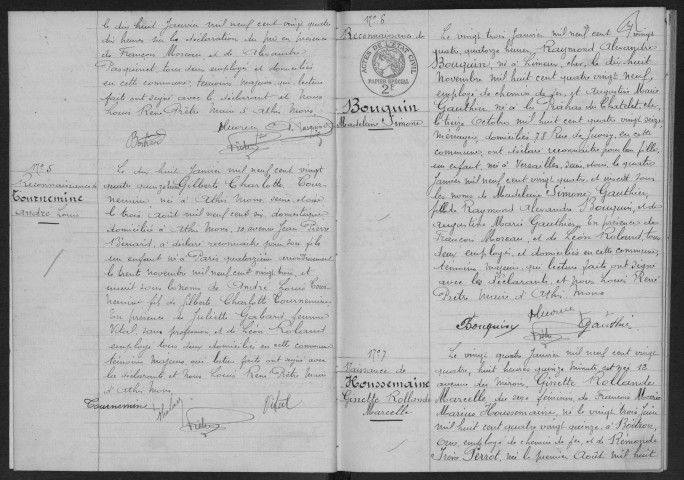 le dix huit Janvier mil neuf cent vingt quatre
dix heures sur la déclaration du père en présence
de François Moreau et de Alexandre
Pasquinet tous deux employés et domiciliés
en cette commune témoins majeurs qui lecture
faite ont signé avec le déclarant et Nous
Louis René Piètre Maire d'Athis Mons
N° 5
Reconnaissance de
Tournemine
André Louis
Le dix huit Janvier mil neuf cent vingt
quatre Gilberte Charlotte Tour-
nemine, née à Athis Mons, Seine et Oise
le trois Août mil neuf cent six domestique
domiciliée à Athis Mons, 20 avenue Jean Pierre
Bénard, a déclaré reconnaître pour son fils
un enfant né à Paris quatorzième arrondissement
le trente novembre mil neuf cent vingt trois, et
inscrit sous les noms de André Louis Tour-
nemine fils de Gilberte Charlotte Tournemine
En présence de Juliette Gabard femme
Vital, sans profession et de Léon Roland
employé tous deux domiciliés en cette commune
témoins majeurs qui lecture faite ont signé avec
la déclarante et Nous Louis René Piètre Maire
d'Athis Mons.
Tournemine
Vital
N° 6
Reconnaissance de
ACTES DE L'ETAT CIVIL
PAPIER SPÉCIAL
2F
Bouquin
Madeleine Simone
Le vingt trois Janvier mil neuf cent vingt
quatre, quatorze heures, Raymond Alexandre
Bouquin, né à Cher, le dix huit
Novembre mil huit cent quatre vingt neuf,
employé de chemin de fer, et Augustine Marie
Gauthier née à la Châtelet,
le treize Octobre mil huit cent quatre vingt seize,
ménagère, domiciliés 78 Rue de Juvisy, en cette
commune, ont déclaré reconnaître pour leur fille,
un enfant, née à Versailles, Seine et Oise, le quatre
Janvier mil neuf cent vingt quatre, et inscrit sous
les noms de Madeleine Simone Gauthier,
fille de Raymond Alexandre Bouquin, et de
Augustine Marie Gauthier. En présence de
François Moreau, et de Léon Roland, tous
deux employés, et domiciliés en cette commune,
témoins majeurs, qui lecture faite ont signé
avec les déclarants, et Nous Louis René
Piètre Maire d'Athis Mons
Bouquin
Gauthier
N° 7
Naissance de
Houssemaine
Ginette Rollande
Marcelle
Le vingt quatre Janvier mil neuf cent vingt
quatre, huit heures quinze minutes est née 12
avenue du Maroc, Ginette Rollande
Marcelle, du sexe féminin de François Marie
Marius Houssemaine, né le vingt trois Juin
mil huit cent quatre vingt quinze à
Orne, employé de chemin de fer, et de
Perrot, née le premier Août mil huit